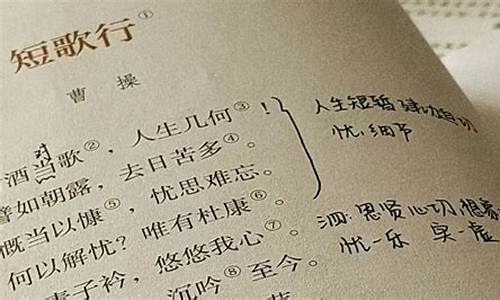 短歌行①
曹操
酒当歌②，人生几何③！
对
譬如朝露，去日苦多④。
慨当以慷⑤，忧思难忘。
何以解忧？唯有杜康⑥。
青子衿，悠悠我心⑦。
沉吟⑧至今。
人生短暂 建功
忧：细节
泗：思贤心切 想
忧一乐 实一虚